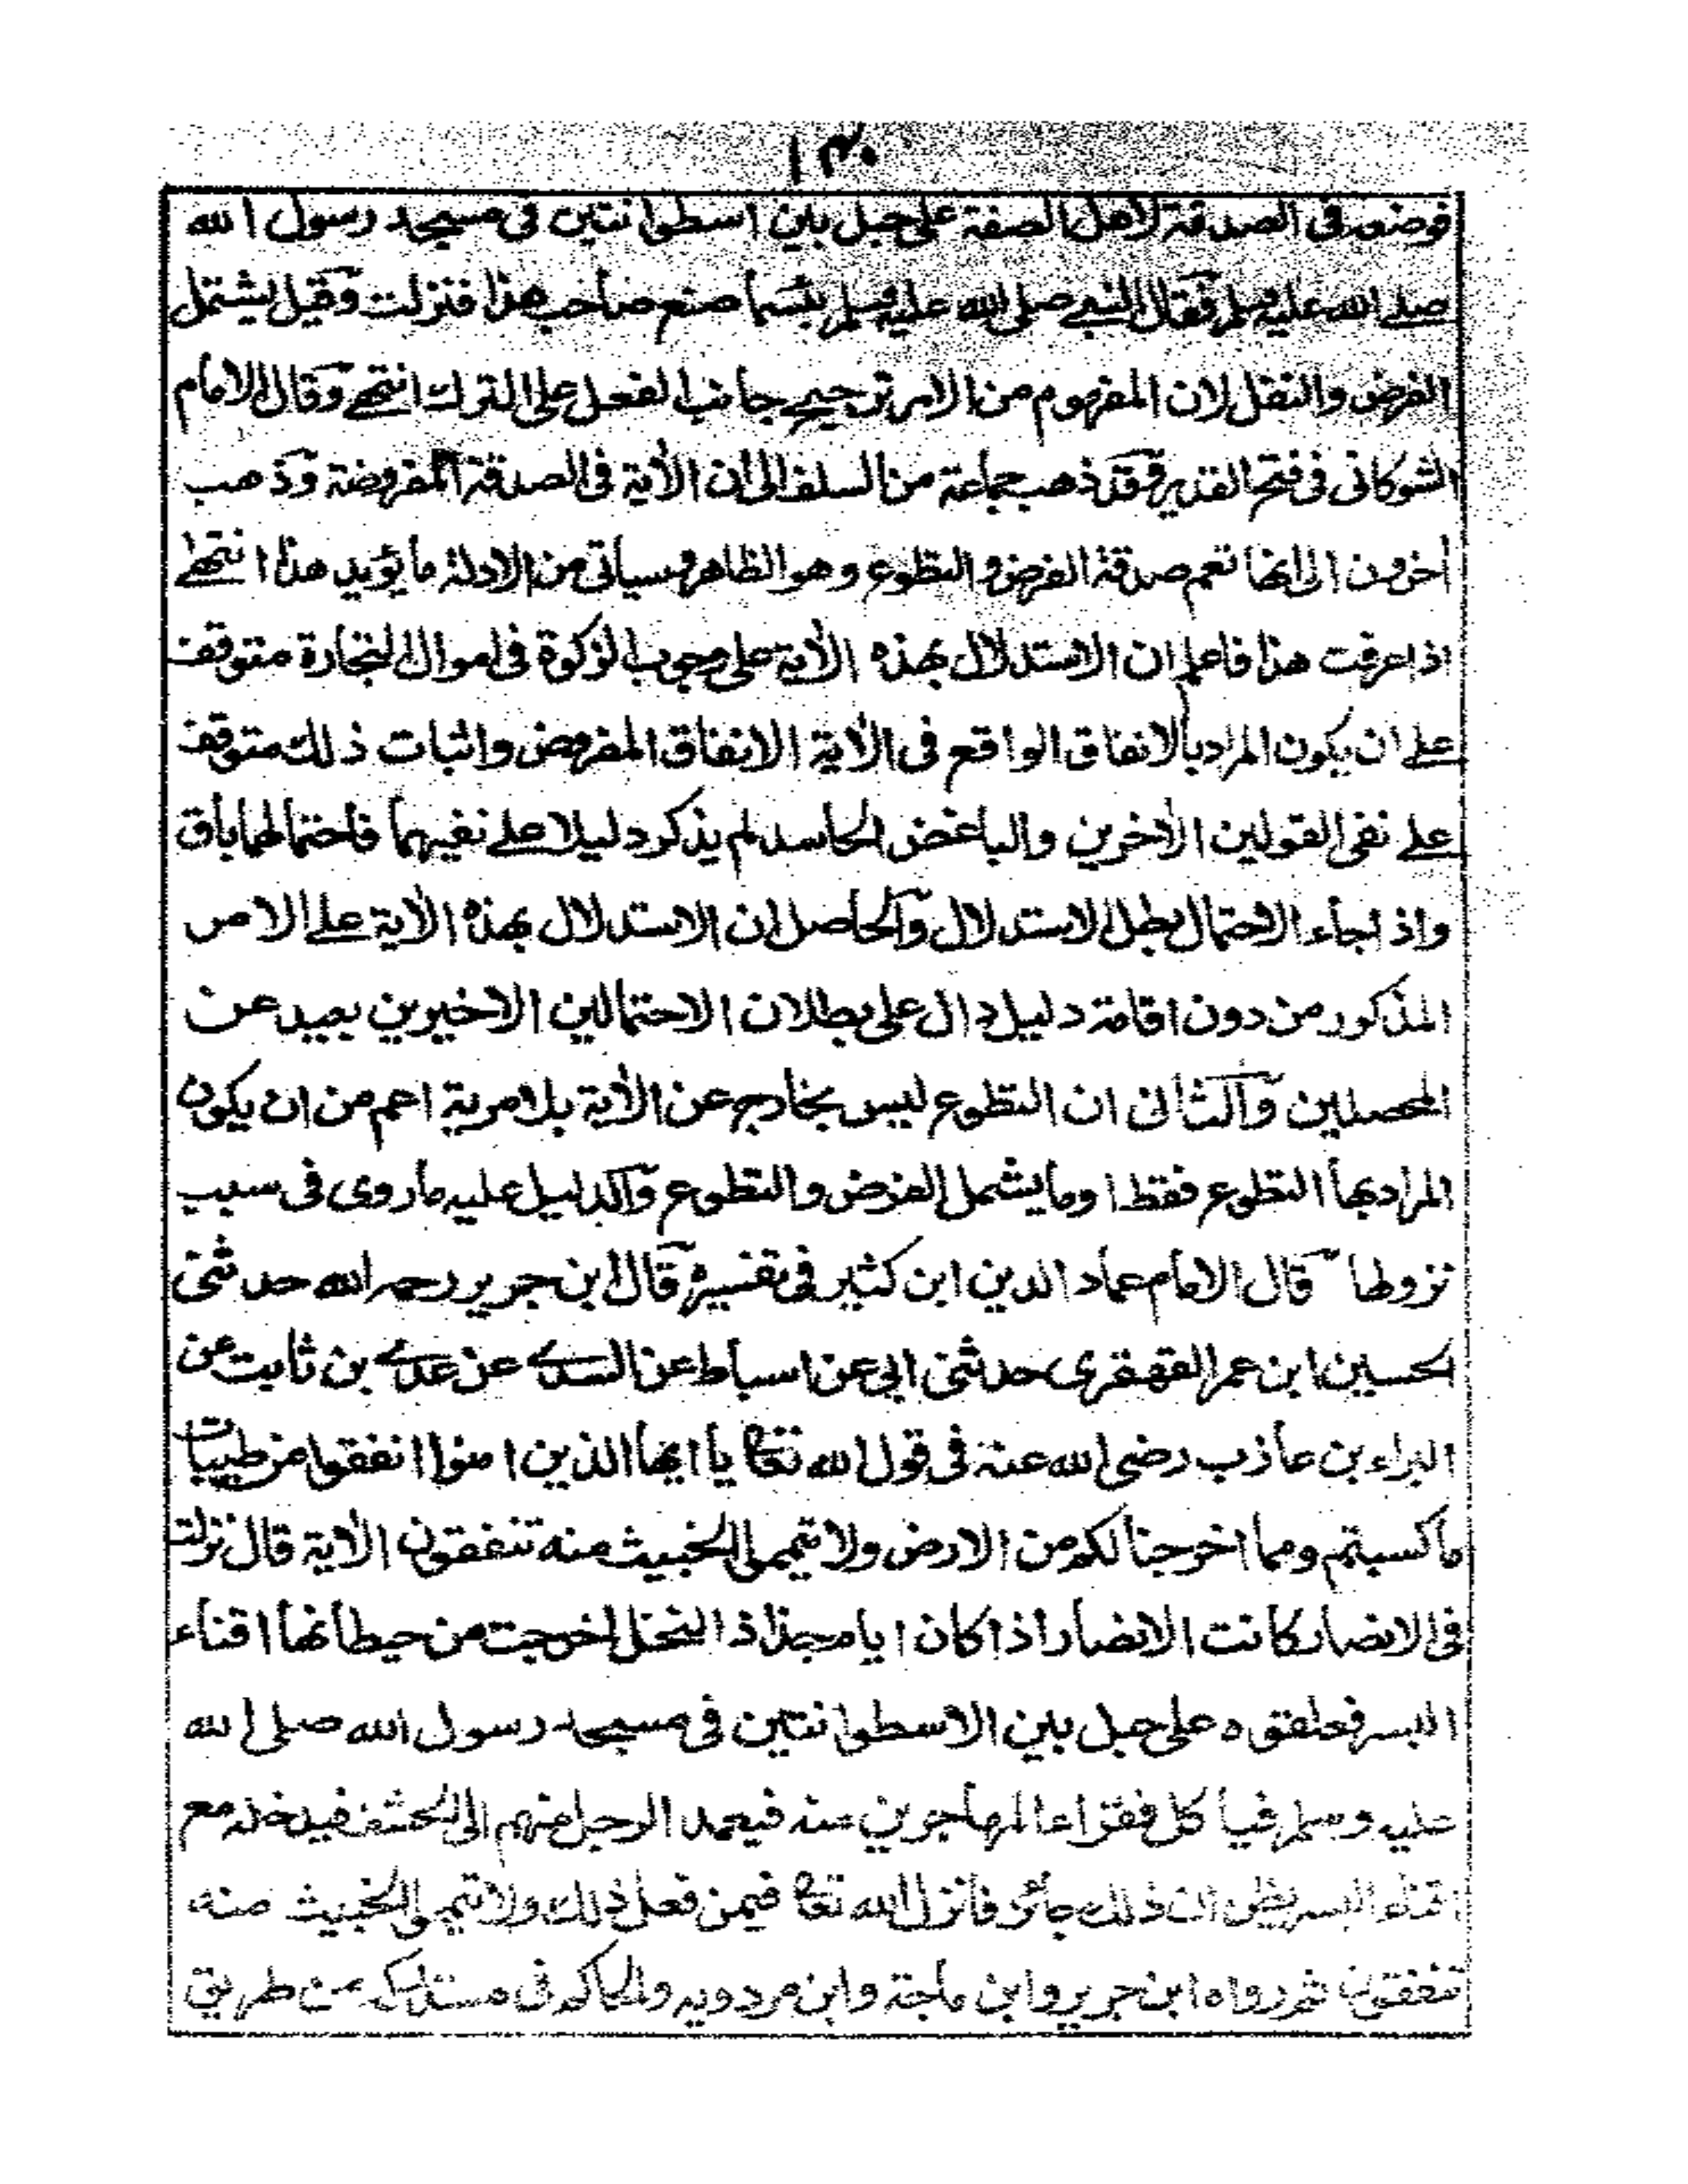 فوضعه فى الصدقة لاهل الصفة على حبل بين اسطوانتين فى مسجد رسول الله
صلى الله عليه وسلم فقال النبى صلى الله عليه وسلم بئسما صنع صاحب هذا فنزلت وقيل يشتمل
الفرض والنفل لان المفهوم من الامر ترجيح جانب الفعل على الترك انتهى وقال الامام
الشوكانى فى فتح القدير وقد ذهب جماعة من السلف الى ان الآية فى الصدقة المفروضة وذهب
آخرون الى انها تعم صدقة الفرض والتطوع وهو الظاهر وسيأتى من الادلة ما يؤيد هذا انتهى
اذا عرفت هذا فاعلم ان الاستدلال بهذه الآية على وجوب الزكوة فى اموال التجارة متوقف
على ان يكون المراد بالانفاق الواقع فى الآية الانفاق المفروض واثبات ذلك متوقف
على نفى القولين الآخرين والباغض الحاسد لم يذكر دليلا على نفيهما فاحتمالهما باق
واذا جاء الاحتمال بطل الاستدلال والحاصل ان الاستدلال بهذه الآية على الامر
المذكور من دون اقامة دليل دال على بطلان الاحتمالين الاخيرين بعيد عن
المحصلين والثانى ان التطوع ليس بخارج عن الآية بلا مرية اعم من ان يكون
المراد بها التطوع فقط او ما يشمل الفرض والتطوع والدليل عليه ما روى فى سبب
نزولها قال الامام عماد الدين ابن كثير فى تفسيره قال ابن جرير رحمه الله حدثنى
الحسين ابن عمر العنقزى حدثنى ابى عن اسباط عن السدى عن عدى بن ثابت عن
البراء بن عازب رضى الله عنه فى قول الله تعالى يا ايها الذين امنوا انفقوا من طيبات
ما كسبتم ومما اخرجنا لكم من الارض ولا تيمموا الخبيث منه تنفقون الآية قال نزلت
فى الانصار كانت الانصار اذا كان ايام جذاذ النخل اخرجت من حيطانها اقناء
البسر فعلقوه على حبل بين الاسطوانتين فى مسجد رسول الله صلى الله
عليه وسلم فيأكل فقراء المهاجرين منه فيعمد الرجل منهم الى الحشف فيدخله مع
اقناء البسر يظن ان ذلك جائز فانزل الله تعالى فيمن فعل ذلك ولا تيمموا الخبيث منه
تنفقون ثم رواه ابن جرير وابن ماجة وابن مردويه والحاكم فى مستدركه من طريق